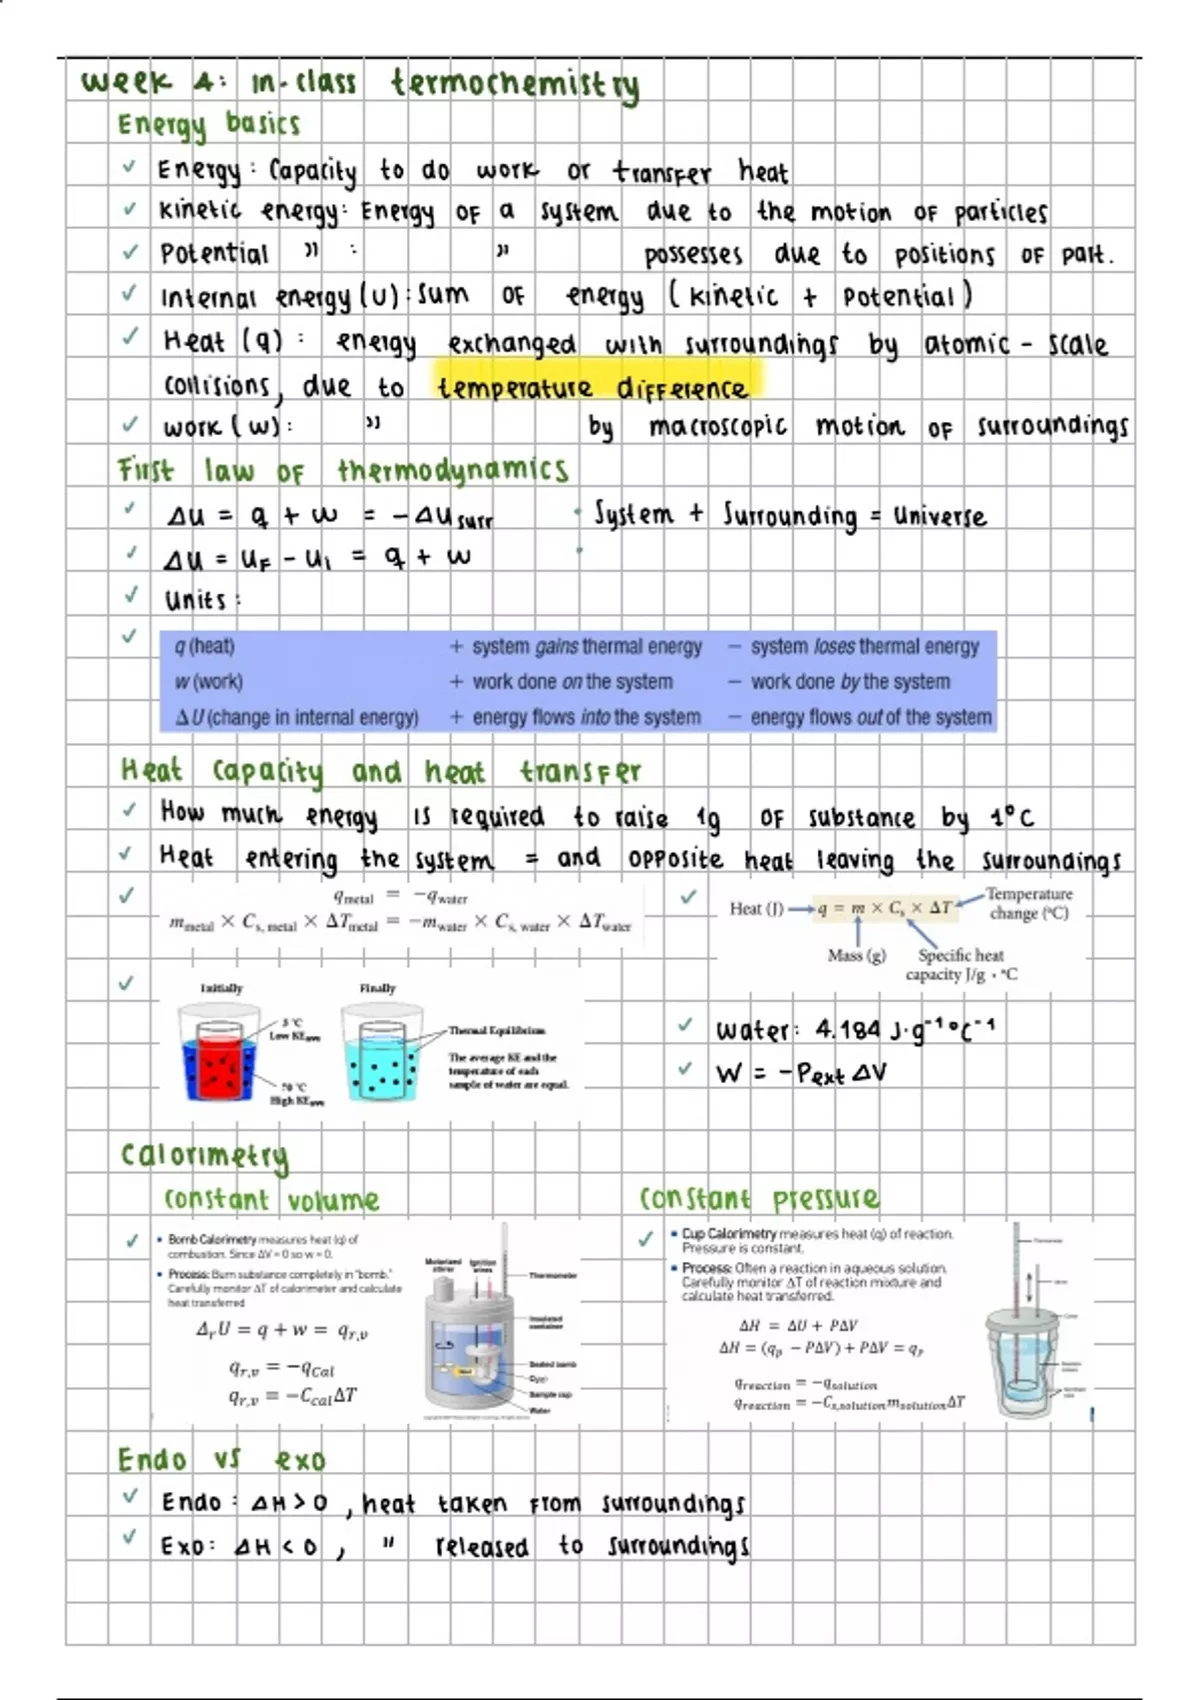 Week 4: In-class termochemistry
Energy basics
✓ Energy: Capacity to do work or transfer heat
✓ Kinetic energy: Energy of a system due to the motion of particles
✓ Potential " : " possesses due to positions of part.
✓ Internal energy (U): Sum of energy (kinetic + Potential)
✓ Heat (q): energy exchanged with surroundings by atomic - scale
collisions, due to temperature difference
✓ work (w): " by macroscopic motion of surroundings
First law of thermodynamics
✓ ΔU = q + w = -ΔUsurr
• System + Surrounding = Universe
✓ ΔU = UF - UI = q + w
•
✓ Units:
✓
q (heat) + system gains thermal energy − system loses thermal energy
w (work) + work done on the system − work done by the system
ΔU (change in internal energy) + energy flows into the system − energy flows out of the system
Heat capacity and heat transfer
✓ How much energy is required to raise 1g of substance by 1°C
✓ Heat entering the system = and opposite heat leaving the surroundings
✓ qmetal = −qwater
mmetal × Cs, metal × ΔTmetal = −mwater × Cs, water × ΔTwater
✓ Heat (J) q = m × Cs × ΔT Temperature
change (°C)
Mass (g) Specific heat
capacity J/g · °C
✓
Initially Finally
5 °C
Low KEave
70 °C
High KEave
Thermal Equilibrium
The average KE and the
temperature of each
sample of water are equal.
✓ Water: 4.184 J·g⁻¹°C⁻¹
✓ W = -Pext ΔV
Calorimetry
Constant volume
✓ • Bomb Calorimetry measures heat (q) of
combustion. Since ΔV = 0 so w = 0.
• Process: Burn substance completely in "bomb."
Carefully monitor ΔT of calorimeter and calculate
heat transferred
ΔrU = q + w = qr,v
qr,v = −qCal
qr,v = −CcalΔT
Motorized
stirrer
Ignition
wires
Thermometer
Insulated
container
Sealed bomb
Sample cup
Water
Constant pressure
✓ • Cup Calorimetry measures heat (q) of reaction.
Pressure is constant.
• Process: Often a reaction in aqueous solution.
Carefully monitor ΔT of reaction mixture and
calculate heat transferred.
ΔH = ΔU + PΔV
ΔH = (qp − PΔV) + PΔV = qp
qreaction = −qsolution
qreaction = −Cs,solution msolution ΔT
Endo vs exo
✓ Endo: ΔH > 0, heat taken from surroundings
✓ Exo: ΔH < 0, " released to surroundings